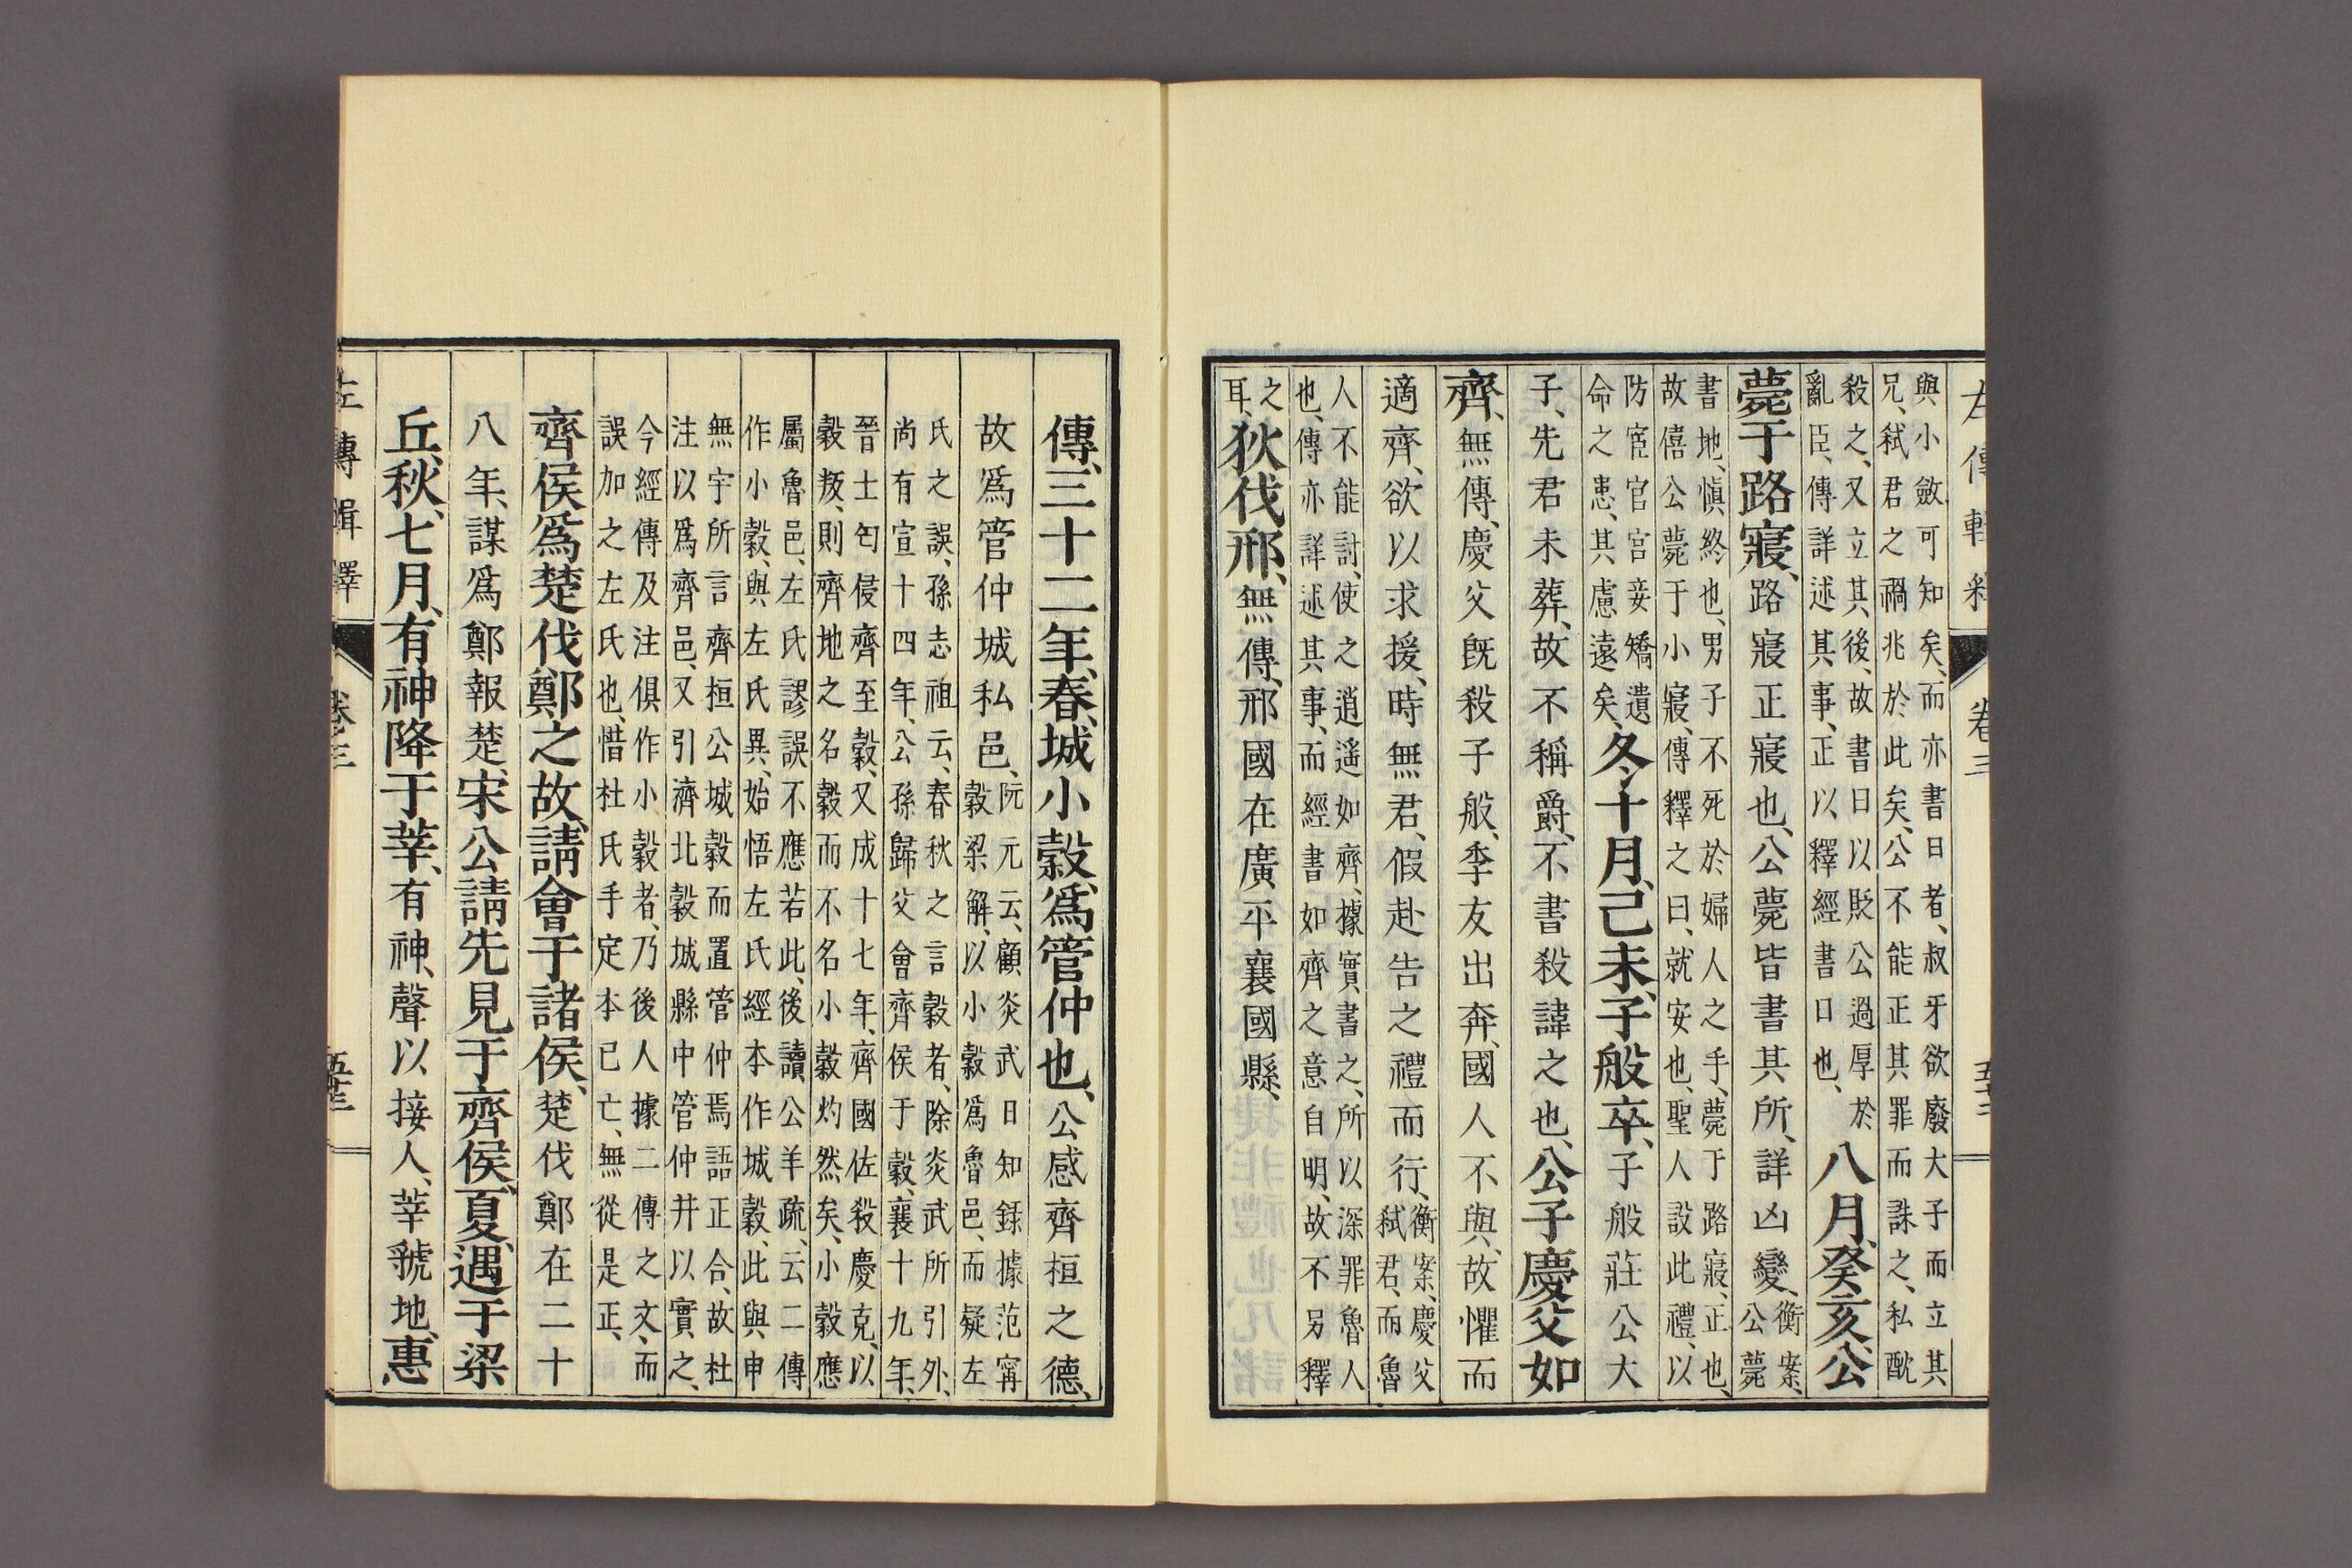 左傳輯釋 卷三 五十二
與小斂可知矣、而亦書日者、叔牙欲廢大子而立其
兄、弒君之禍兆於此矣、公不能正其罪而誅之、私酖
殺之、又立其後、故書日以貶公過厚於
亂臣、傳詳述其事、正以釋經書日也、
八月、癸亥、公
薨于路寢、路寢正寢也、公薨皆書其所、詳凶變、
衡案、
公薨
書地、愼終也、男子不死於婦人之手、薨于路寢、正也、
故僖公薨于小寢、傳釋之曰、就安也、聖人設此禮、以
防宦官宮妾矯遺
命之患、其慮遠矣、
冬、十月、己未、子般卒、子般莊公大
子、先君未葬、故不稱爵、不書殺諱之也、公子慶父如
齊、無傳、慶父既殺子般、季友出奔、國人不與、故懼而
適齊、欲以求援、時無君、假赴告之禮而行、
衡案、慶父
弒君、而魯
人不能討、使之逍遙如齊、據實書之、所以深罪魯人
也、傳亦詳述其事、而經書如齊之意自明、故不另釋
之
耳、
狄伐邢、無傳、邢國在廣平襄國縣、
傳、三十二年、春、城小穀、爲管仲也、公感齊桓之德、
故爲管仲城私邑、
阮元云、顧炎武日知錄據范甯
穀梁解、以小穀爲魯邑、而疑左
氏之誤、孫志祖云、春秋之言穀者、除炎武所引外、
尚有宣十四年、公孫歸父會齊侯于穀、襄十九年、
晉士匄侵齊至穀、又成十七年、齊國佐殺慶克、以
穀叛、則齊地之名穀而不名小穀灼然矣、小穀應
屬魯邑、左氏謬誤不應若此、後讀公羊疏、云二傳
作小穀、與左氏異、始悟左氏經本作城穀、此與申
無宇所言齊桓公城穀而置管仲焉語正合、故杜
注以爲齊邑、又引濟北穀城縣中管仲井以實之、
今經傳及注俱作小穀者、乃後人據二傳之文、而
誤加之左氏也、惜杜氏手定本已亡、無從是正、
齊侯爲楚伐鄭之故、請會于諸侯、楚伐鄭在二十
八年、謀爲鄭報楚、宋公請先見于齊侯、夏、遇于梁
丘、秋、七月、有神降于莘、有神、聲以接人、莘虢地、惠
左傳輯釋 卷三 五十三